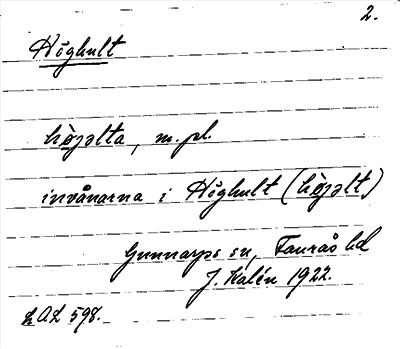 2.
Höghult
hö̀jəlta, m. pl.
invånarna i Höghult (hö̀jəlt)
Gunnarps sn, Faurås hd
J. Kalén 1922.
LAL 598.